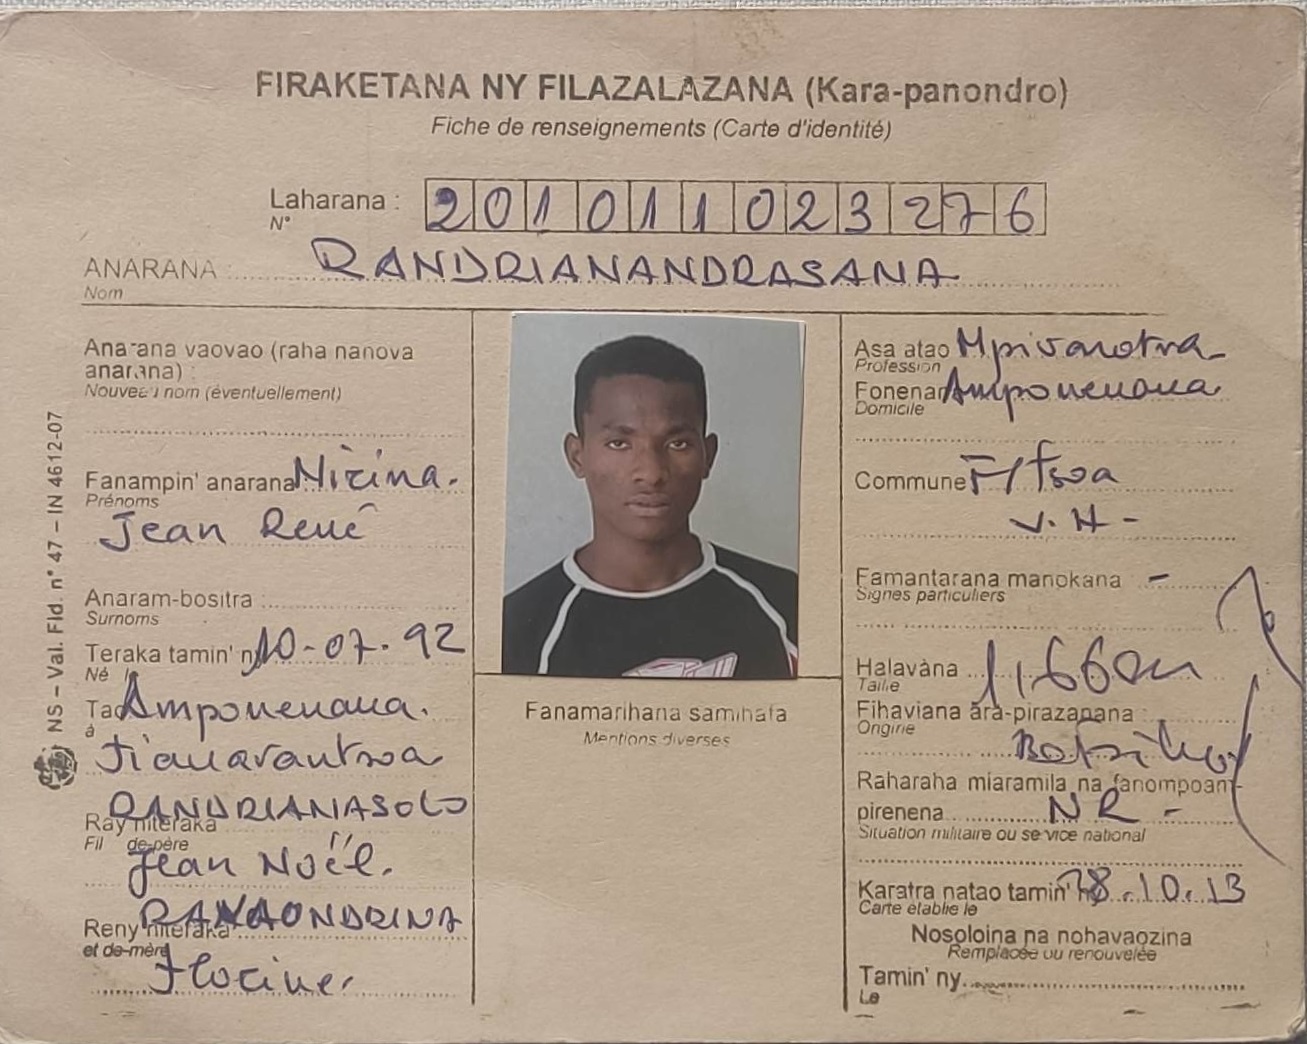 FIRAKETANA NY FILAZALAZANA (Kara-panondro)
Fiche de renseignements (Carte d'identité)
Laharana : 201011023276
N°
ANARANA : RANDRIANANDRASANA
Nom
Anarana vaovao (raha nanova
anarana) :
Nouveau nom (éventuellement)
Fanampin' anarana Nirina.
Prénoms
Jean René
Anaram-bositra :
Surnoms
Teraka tamin' ny 10-07-92
Né le
Tao Amponenana.
à
Fianarantsoa
RANDRIANASOLO
Ray niteraka
Fil de-père
Jean Noël.
Reny niteraka
et de-mère
NS – Val. Fld. n° 47 – IN 4612-07
Fanamarihana samihafa
Mentions diverses
Asa atao Mpivarotra
Profession
Fonenana Amponenana
Domicile
Commune F/tsoa
V.H-
Famantarana manokana -
Signes particuliers
Halavàna 1,66cm
Taille
Fihaviana ara-pirazanana :
Origine
Raharaha miaramila na fanompoam-
pirenena NR -
Situation militaire ou service national
Karatra natao tamin' 10.13
Carte établie le
Nosoloina na nohavaozina
Remplacée ou renouvelée
Tamin' ny
Le